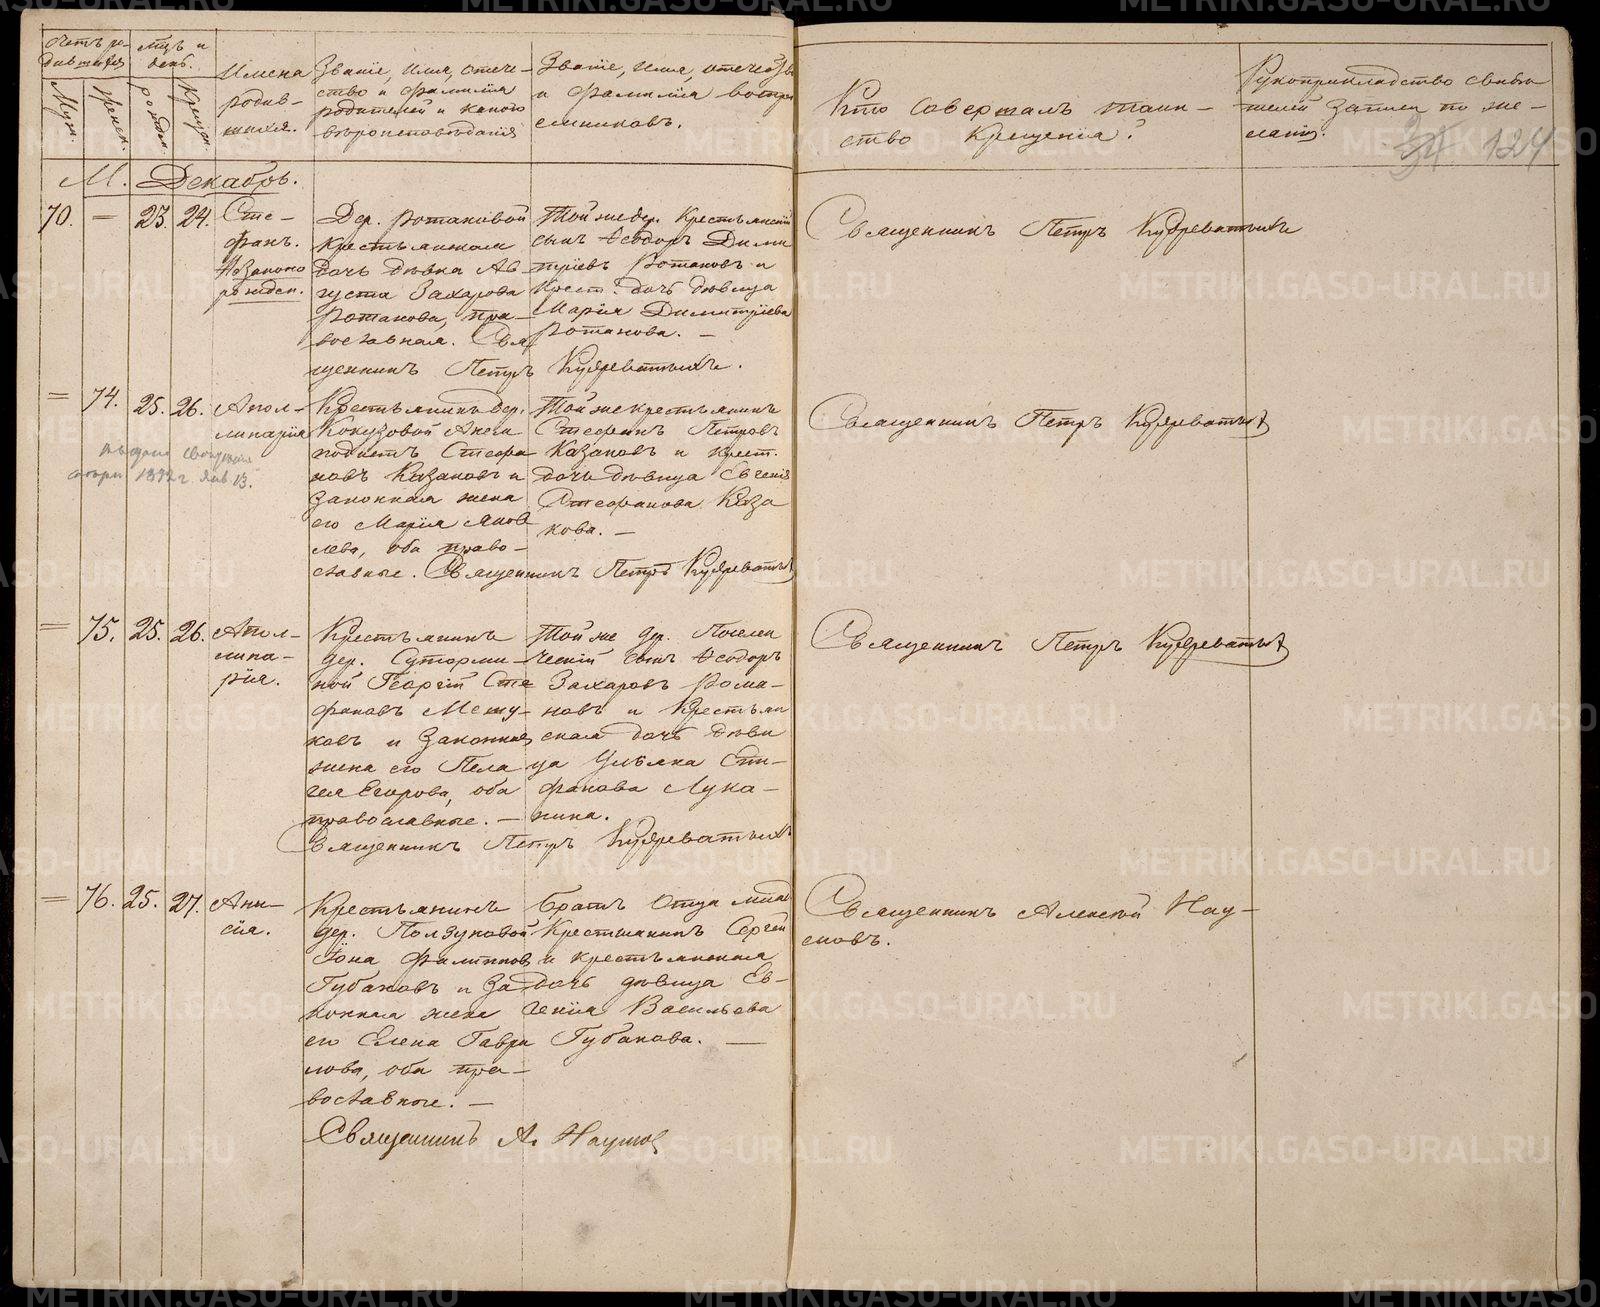 Счетъ ро-
дившихся
Муж.
Женск.
Мцъ и
день.
рожден.
Крещен.
Имена
родив-
шихся.
Званіе, имя, отече-
ство и фамилія
родителей и какого
вѣроисповѣданія
Званіе, имя, отечество
и фамилія воспри
емниковъ.
Кто совершалъ таин-
ство крещенія?
Рукоприкладство свидѣ
телей записи по же-
ланію.
124
М. Декабрь.
70. — 23. 24.
Сте-
фанъ.
Незаконо
рожден.
Дер. Ротаковой
крестьянская
дочь дѣвка Ав
густа Захарова
Ротакова, пра-
вославная. Свя
щенникъ Петръ Кудреватыхъ.
Той же дер. Крестьянскій
сынъ Ѳеодоръ Дими
тріевъ Ротаковъ и
Крест. дочь дѣвица
Марія Димитріева
Ротакова. —
Священникъ Петръ Кудреватыхъ
= 74. 25. 26.
Апол-
линарія
1892 г. Янв 13.
Крестьянинъ дер.
Кокузовой
Стефа
новъ Казаковъ и
законная жена
его Марія Яков
лева, оба право-
славные. Священникъ Петръ Кудреватыхъ
Той же крестьянинъ
Стефанъ Петровъ
Казаковъ и крест.
дочь дѣвица Евгенія
Стефанова Каза
кова. —
Священникъ Петръ Кудреватыхъ
= 75. 25. 26.
Апол-
лина-
рія.
Крестьянинъ
дер. Суторми-
ной Георгій Сте
фановъ
и законная
жена его Пела
гея Егорова, оба
православные. —
Священникъ Петръ Кудреватыхъ
Той же дер.
сынъ Ѳеодоръ
Захаровъ Рома-
новъ и крестьян
ская дочь дѣви
ца Ульяна Епи-
фанова Лука-
нина.
Священникъ Петръ Кудреватыхъ
= 76. 25. 27.
Ани-
сія.
Крестьянинъ
дер. Ползуновой
Іона Филипповъ
Губаковъ и за
конная жена
его Елена Гаври
лова, оба пра-
вославные. —
Священникъ А. Наумовъ
Братъ отца млад
Крестьянинъ Сергей
и крестьянская
дочь дѣвица Ев-
генія Васильева
Губакова. —
Священникъ Алексѣй Нау-
мовъ.
METRIKI.GASO-URAL.RU